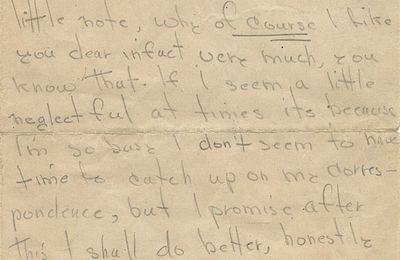 little note, why of course I like
you dear infact very much, you
know that. If I seem a little
neglectful at times its because
I'm so busy I don't seem to have
time to catch up on my corres-
pondence, but I promise after
this I shall do better, honestly